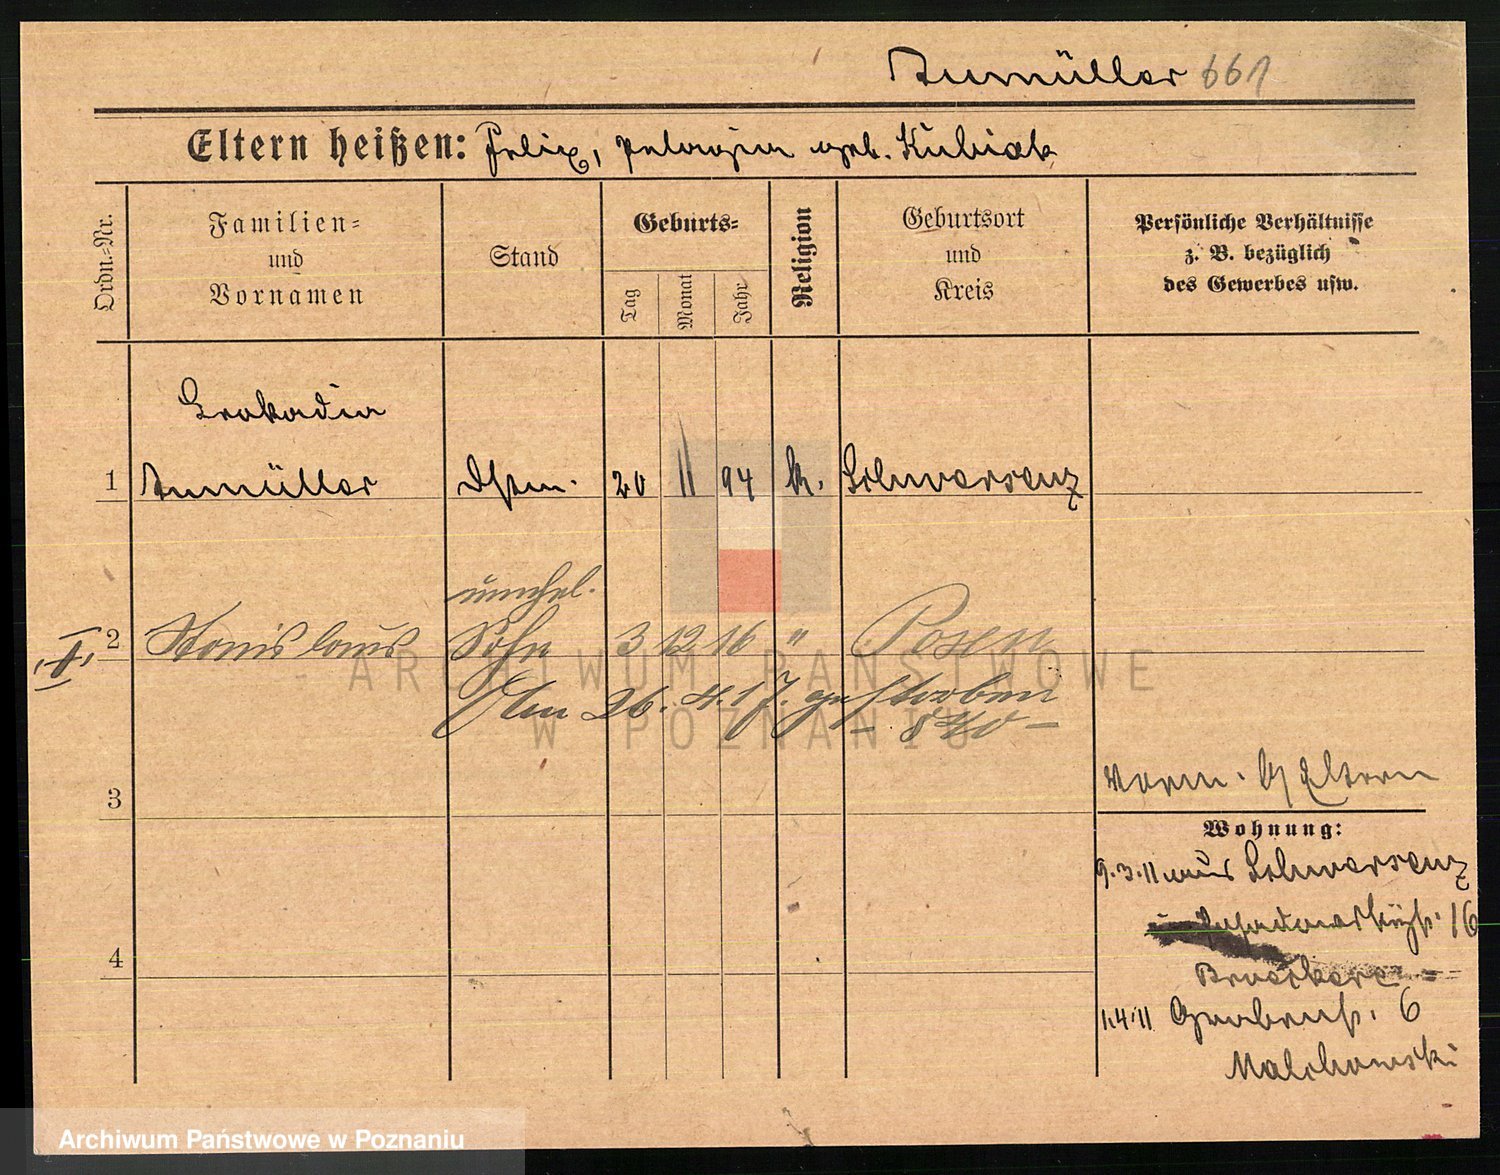 Numüller 661
Eltern heißen: Felix, Pelagia geb. Kubiak
Ordn.=Nr.
Familien=
und
Vornamen
Stand
Geburts=
Tag
Monat
Jahr
Religion
Geburtsort
und
Kreis
Persönliche Verhältnisse
z. B. bezüglich
des Gewerbes usw.
Leokadia
1 Numüller 20 11 94 k. Schwersenz
unehel.
2 Stanislaus Sohn 3 12 16 " Posen
Den 26. 4. 17. gestorben
3
Eltern
Wohnung:
9.3.11 aus Schwersenz
16
4
1.4.11 Grabenst. 6
Malchowski
ARCHIWUM PAŃSTWOWE
W POZNANIU
Archiwum Państwowe w Poznaniu